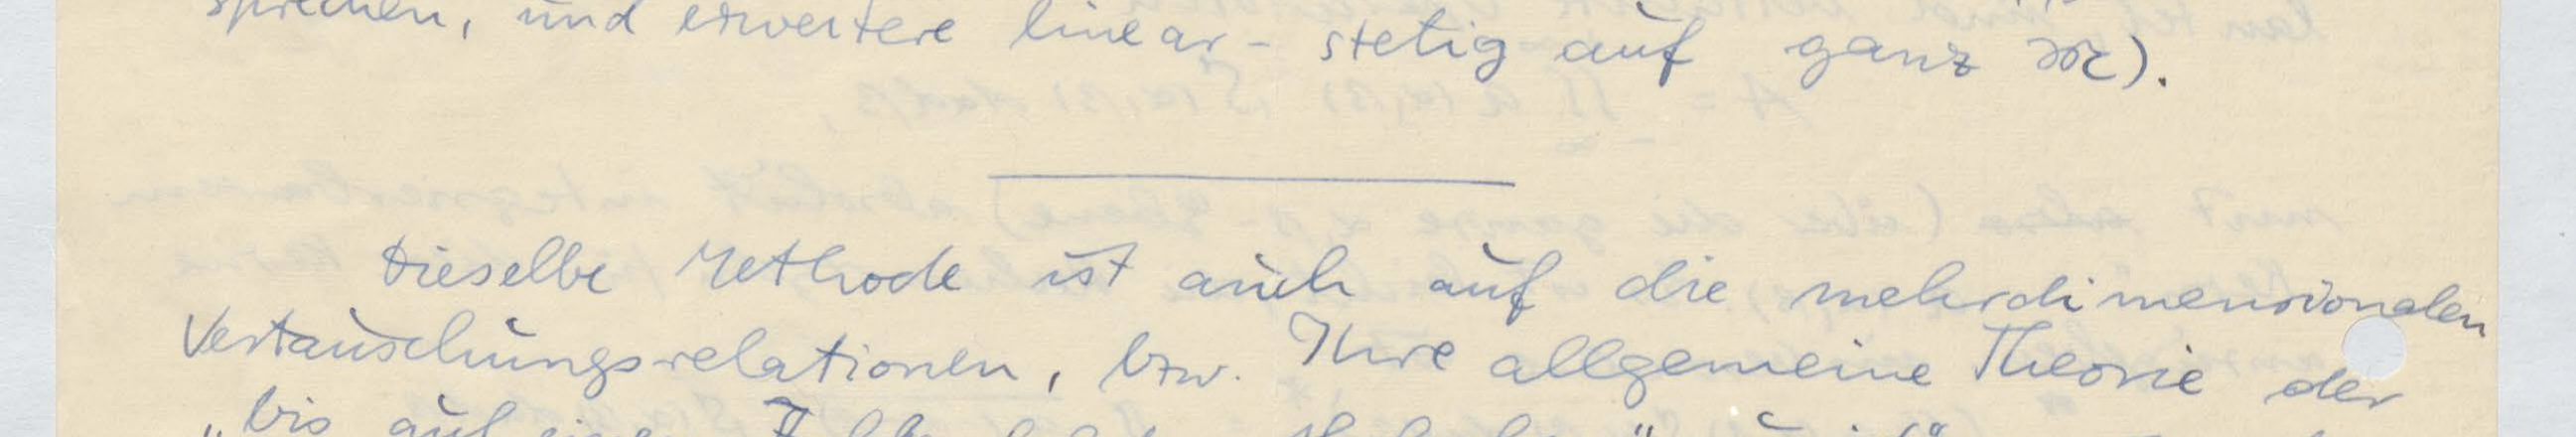 sprechen, und erweitere linear-stetig auf ganz ℜ).
Dieselbe Methode ist auch auf die mehrdimensionalen
Vertauschungsrelationen, bzw. Ihre allgemeine Theorie der
„bis auf einen